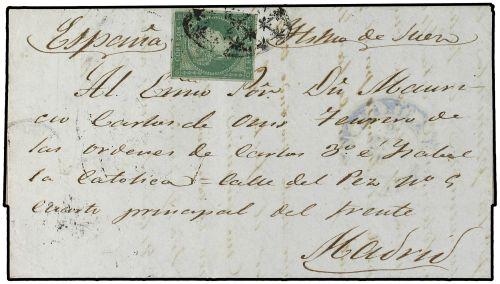 España Istmo de Suez
CORREOS
Al Exmo Sôr. Dn Mauri-
cio Carlos de Onis Tesorero de
las ordenes de Carlos 3º é Isabel
la Catolica = Calle del Pez nº 5
cuarto principal del frente
Madrid